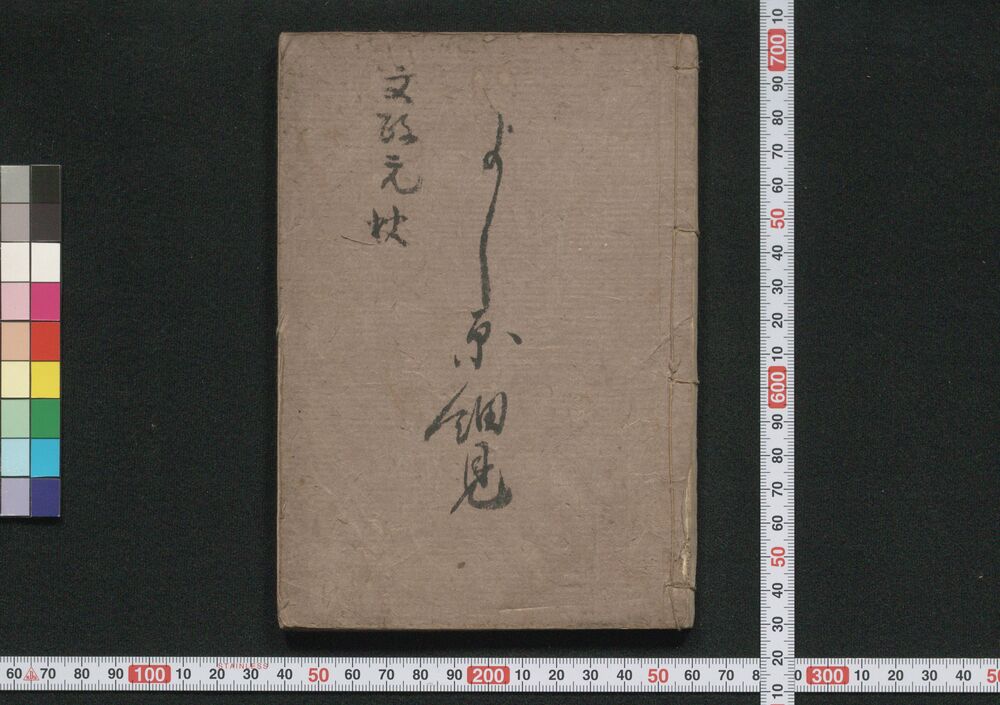 よし原細見
文政元秋
60 70 80 90 100 10 20 30 40 50 60 70 80 90 200 10 20 30 40 50 60 70 8 0 300 10 20 30 40 50
STAINLESS
10 700 90 80 70 60 50 40 30 20 10 600 90 80 70 60 50 40 30 20 10